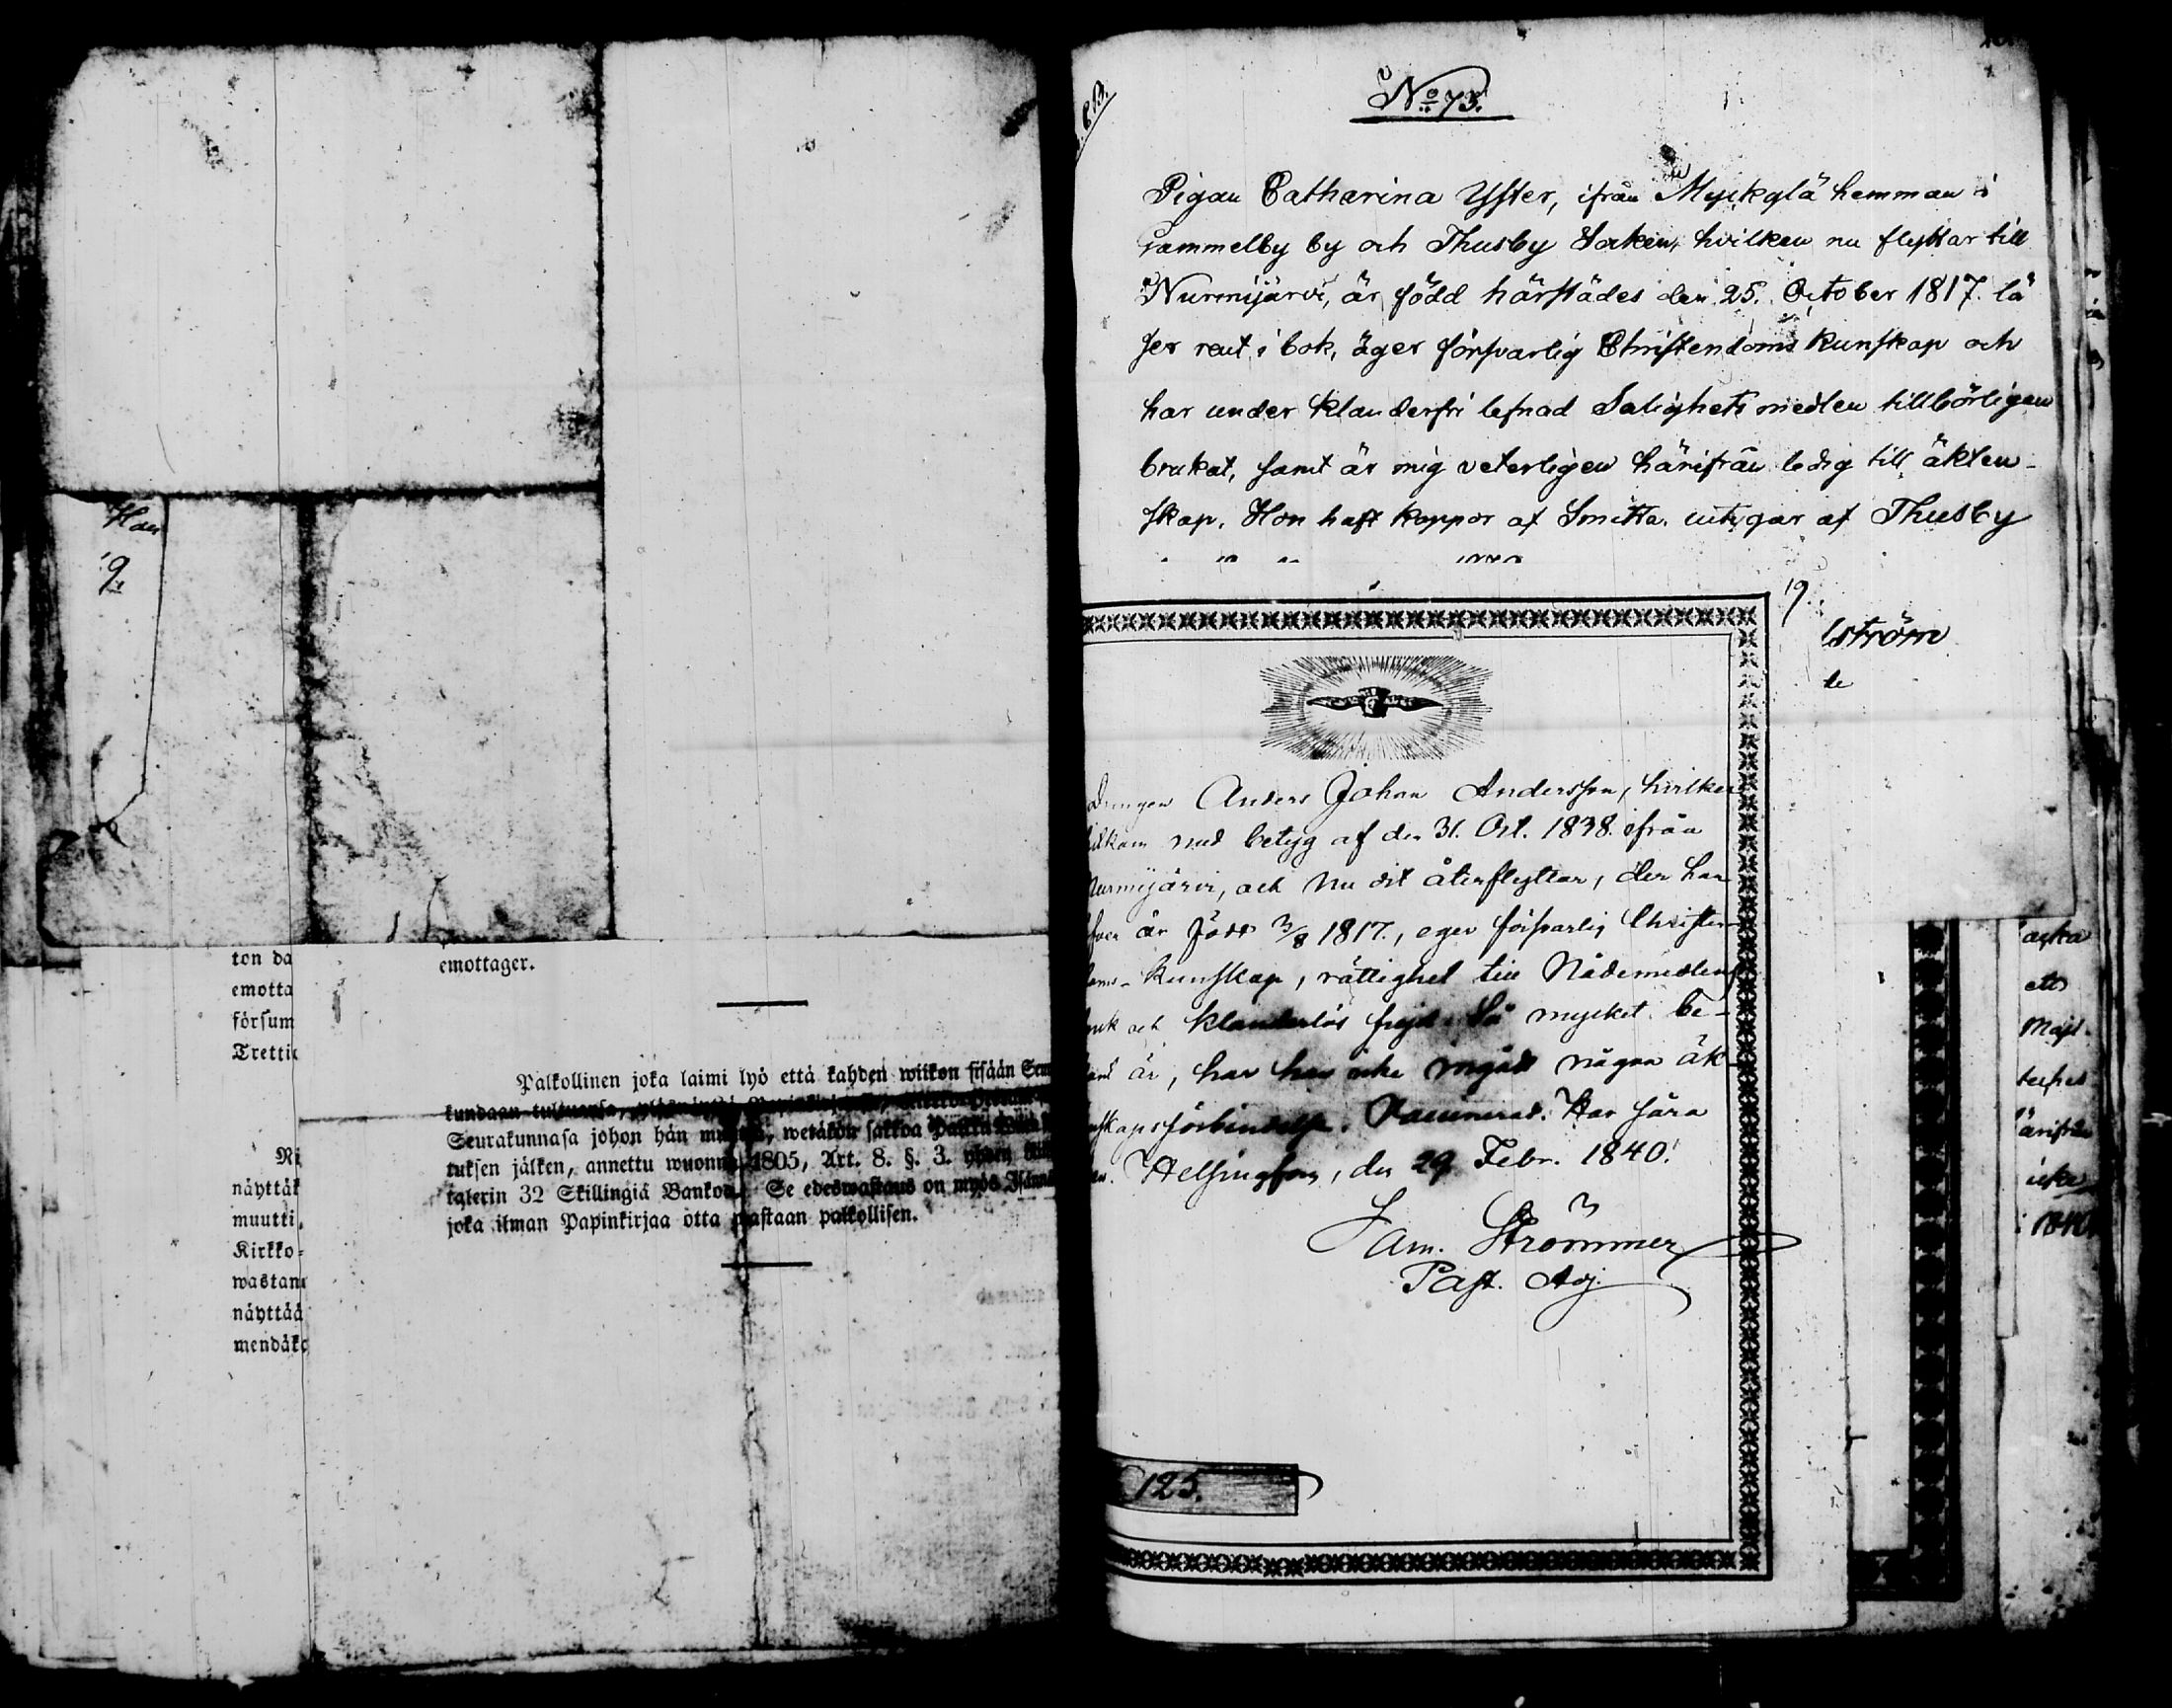 Han
9.
ton da
emotta
försum
Trettio
emottager.
Palkollinen joka laimi lyö että kahden wiikon sisään Seu
kundaan
Seurakunnasa johon hän wetäkön sakkoa
tuksen jälken, annettu wuonna 1805, Art. 8. §. 3.
talerin 32 Skillingiä Bankos. Se edeswastaus on myös Isännä
joka ilman Papinkirjaa otta wastaan palkollisen.
Ni
näyttäk
muutti,
Kirkko-
wastan
näyttää
mendäkö
No 73.
Pigan Catharina Yster, ifrån Myckglä hemman i
Gammelby by och Thusby Socken, hvilken nu flyttar till
Nurmijärvi, är född härstädes den 25. October 1817. lä
ser rent i bok, äger försvarlig Christendoms kunskap och
har under klanderfri lefnad Salighets medlen tillbörligen
brukat, samt är mig veterligen härifrån ledig till äkten-
skap. Hon haft koppor af Smitta. intygar af Thusby
19.
ström
te
Drengen Anders Johan Andersson, hvilken
hitkom med betyg af den 31. Oct. 1838. ifrån
Nurmijärvi, och nu dit återflyttar, der han
är född 3/8 1817., eger försvarlig Christen-
doms-kunskap, rättighet till Nådemedlens
bruk och klanderlös frejd. Så mycket be-
kant är, har han icke ingått någon äk-
tenskapsförbindelse. Vaccinerad. Har före
Helsingfors, den 29 Febr. 1840.
Sam. Strömmer
Past. Adj.
125.
ett
Majt.
ärifrån
1840